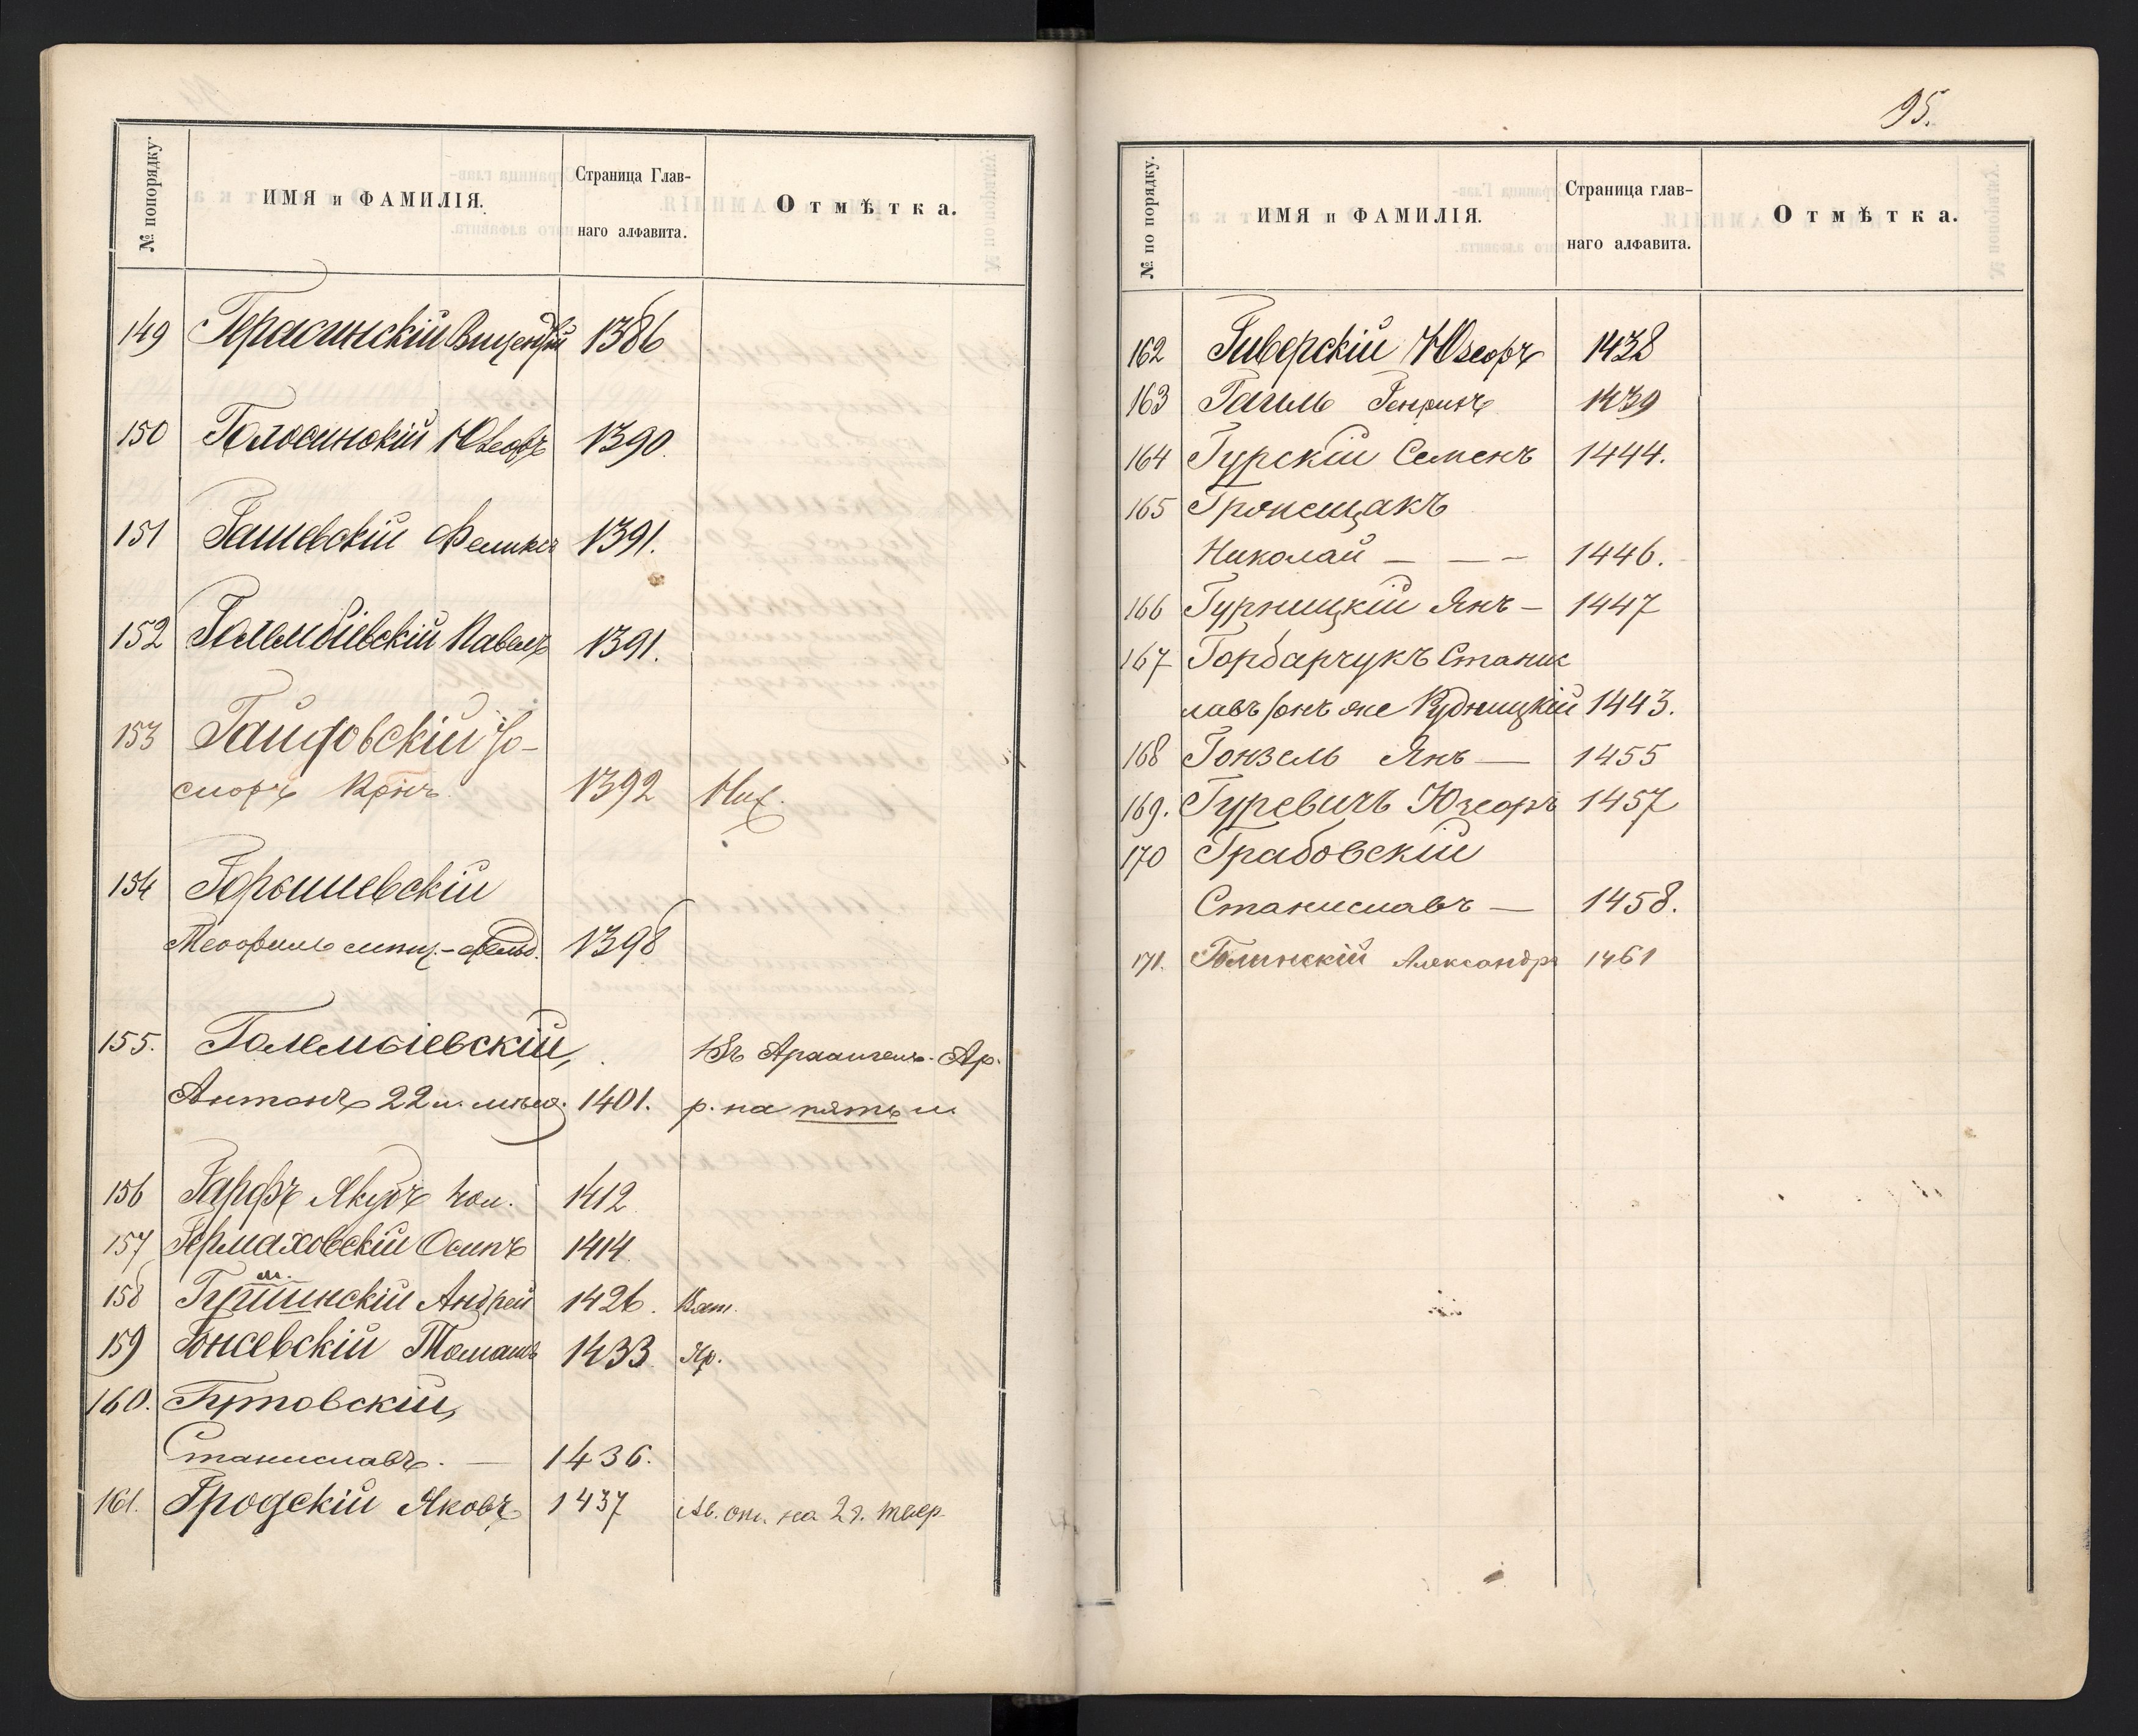 № попорядку.
ИМЯ и ФАМИЛІЯ.
Страница Глав-
наго алфавита.
Отмѣтка.
149 Герасинскій Винцентій 1386
150 Голосинскій Юзефъ 1390.
151 Гашевскій Феликсъ 1391.
152 Голембіевскій Павелъ 1391.
153 Гайдовскій Іо-
сифъ 1392
154 Горошевскій
Теофиль 1398
155. Голембіевскій,
Антонъ 22 л. 1401. р. на пять л
Въ Архангел. Ар.
156 Гарфъ Якубъ кол. 1412
157 Гермаховскій Осипъ 1414
158 Гушинскій Андрей 1426. Вят.
159 Гонсевскій Томашъ 1433. Яр.
160. Гутовскій,
Станиславъ. — 1436.
161. Гродскій Яковъ 1437 на 2 г.
95.
№ по порядку.
ИМЯ и ФАМИЛІЯ.
Страница глав-
наго алфавита.
Отмѣтка.
162 Гиверскій Юзефъ 1438
163 Гагиль Генрихъ 1439
164 Гурскій Семенъ 1444.
165 Гронещакъ
Николай — — — 1446.
166 Гурницкій Янъ — 1447
167 Горбарчукъ Станис
лавъ онъ же Рудницкій 1443.
168 Гонзель Янъ — 1455
169. Гуревичъ Юзефъ 1457
170 Грабовскій
Станиславъ — 1458.
171. Голинскій Александръ 1461